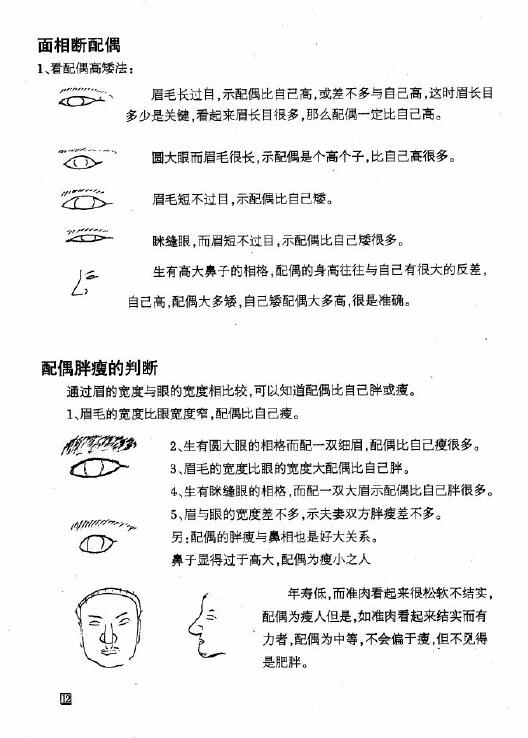 面相断配偶
1、看配偶高矮法：
眉毛长过目，示配偶比自己高，或差不多与自己高，这时眉长目
多少是关键，看起来眉长目很多，那么配偶一定比自己高。
圆大眼而眉毛很长，示配偶是个高个子，比自己高很多。
眉毛短不过目，示配偶比自己矮。
眯缝眼，而眉短不过目，示配偶比自己矮很多。
生有高大鼻子的相格，配偶的身高往往与自己有很大的反差，
自己高，配偶大多矮，自己矮配偶大多高，很是准确。
配偶胖瘦的判断
通过眉的宽度与眼的宽度相比较，可以知道配偶比自己胖或瘦。
1、眉毛的宽度比眼宽度窄，配偶比自己瘦。
2、生有圆大眼的相格而配一双细眉，配偶比自己瘦很多。
3、眉毛的宽度比眼的宽度大配偶比自己胖。
4、生有眯缝眼的相格，而配一双大眉示配偶比自己胖很多。
5、眉与眼的宽度差不多，示夫妻双方胖瘦差不多。
另：配偶的胖瘦与鼻相也是好大关系。
鼻子显得过于高大，配偶为瘦小之人
年寿低，而准肉看起来很松软不结实，
配偶为瘦人但是，如准肉看起来结实而有
力者，配偶为中等，不会偏于瘦，但不见得
是肥胖。
12